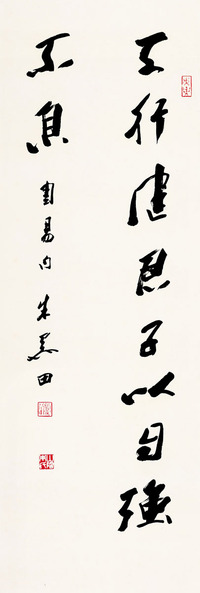 天行健君子以自强
不息 周易句 朱若田